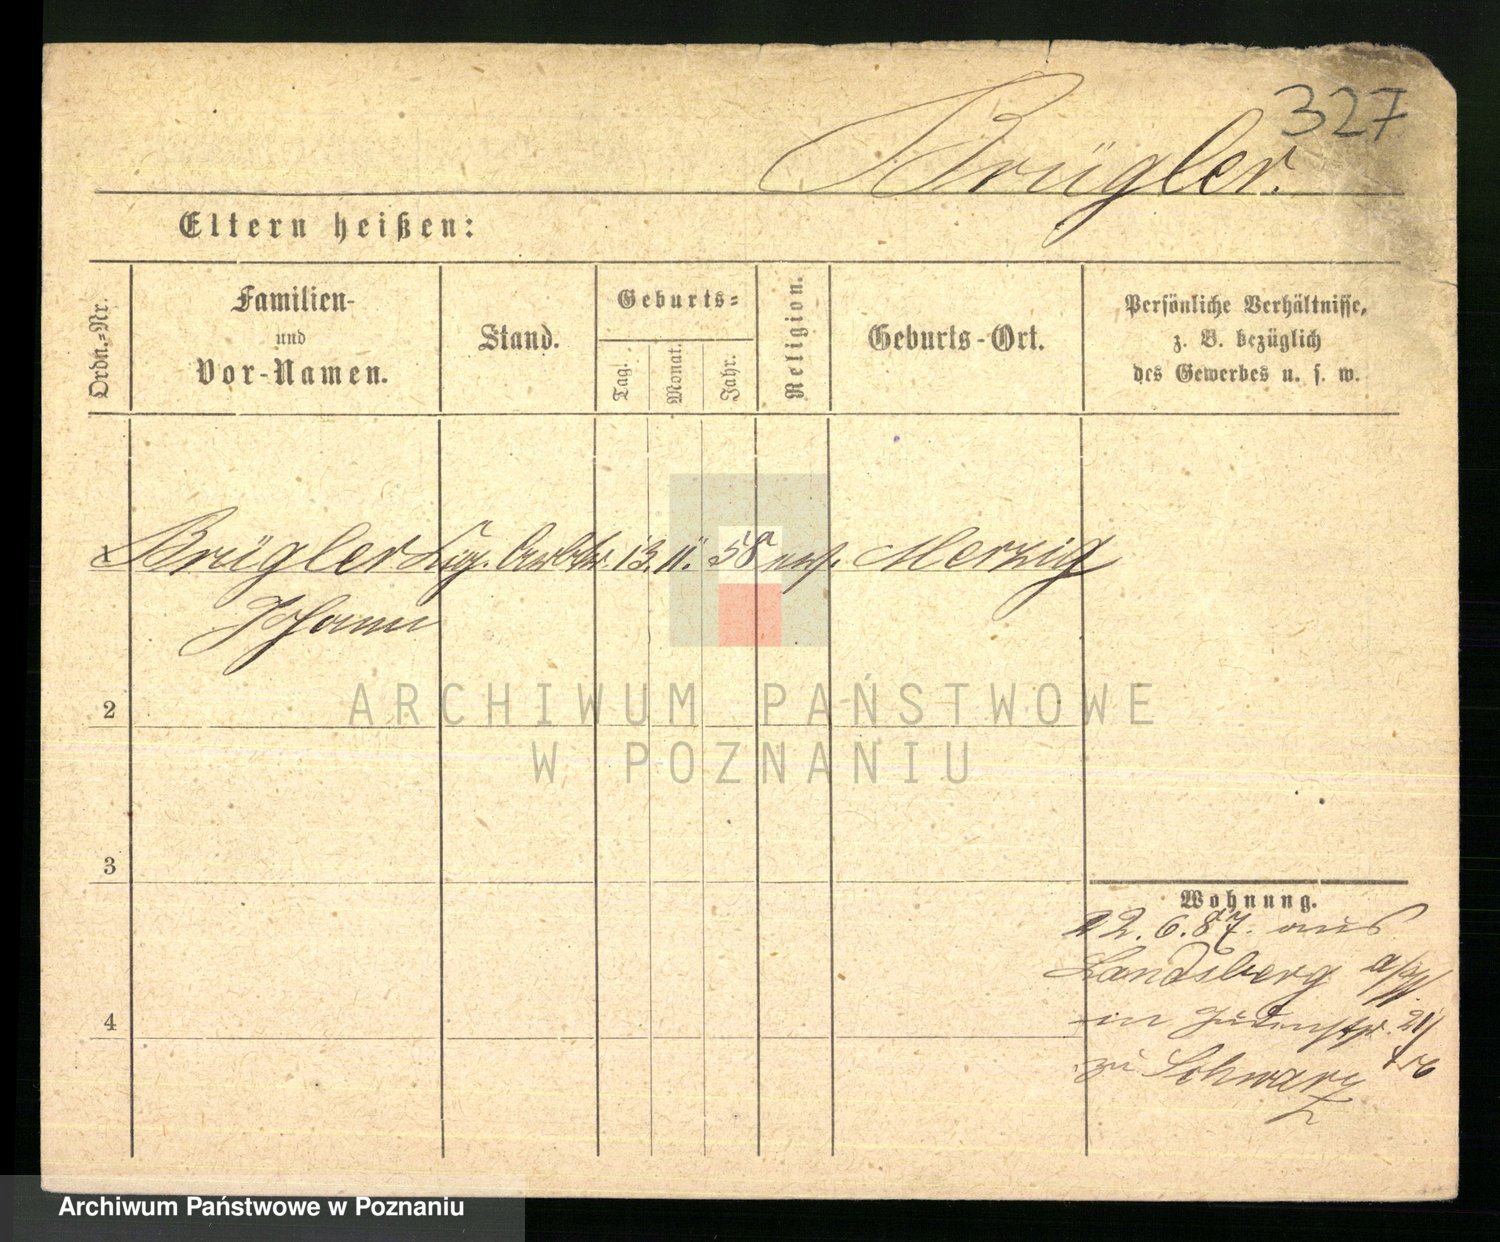 327
Brügler.
Eltern heißen:
Ordn.-Nr.
Familien-
und
Vor-Namen.
Stand.
Geburts-
Tag.
Monat.
Jahr.
Religion.
Geburts-Ort.
Persönliche Verhältnisse,
z. B. bezüglich
des Gewerbes u. s. w.
1 Brügler Cig. Arbtr. 13. 11. 58 Merzig
Johann
ARCHIWUM PAŃSTWOWE
W POZNANIU
2
3
4
Wohnung.
22. 6. 87. aus
Landsberg a/W.
in Judenstr. 21/
zu Schwarz
Archiwum Państwowe w Poznaniu